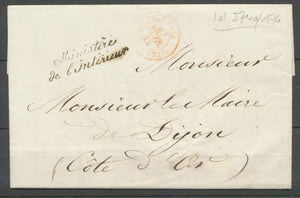 Ministère
de l'Intérieur
Monsieur
Monsieur le Maire
de Dijon
(Côte d'Or)